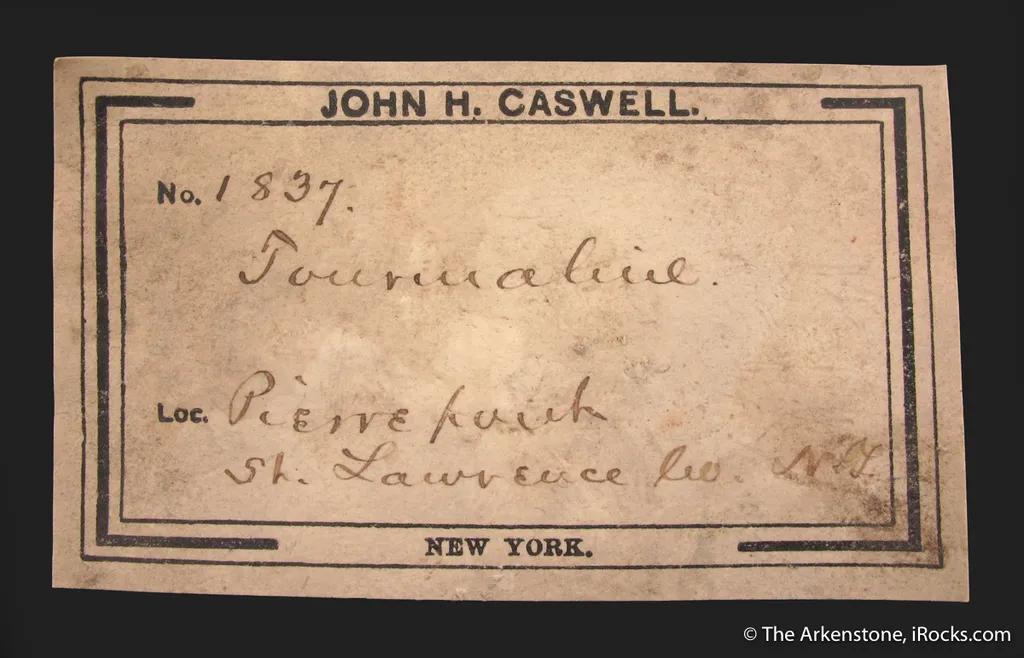 JOHN H. CASWELL.
No. 1837.
Tourmaline.
Loc. Pierrepont
St. Lawrence Co. N.Y.
NEW YORK.
© The Arkenstone, iRocks.com